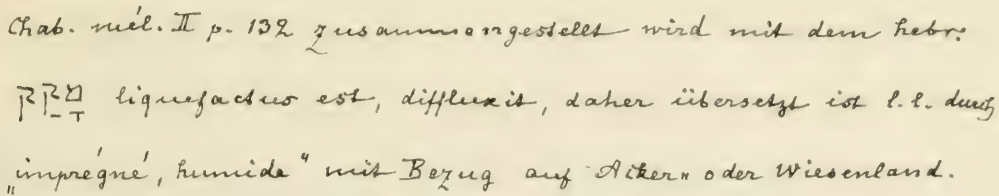 Chab. mél. II p. 132 zusammengestellt wird mit dem hebr:
מָקַק liquefactus est, diffluxit, daher übersetzt ist l. l. durch
„imprégné, humide“ mit Bezug auf Acker„ oder Wiesenland.